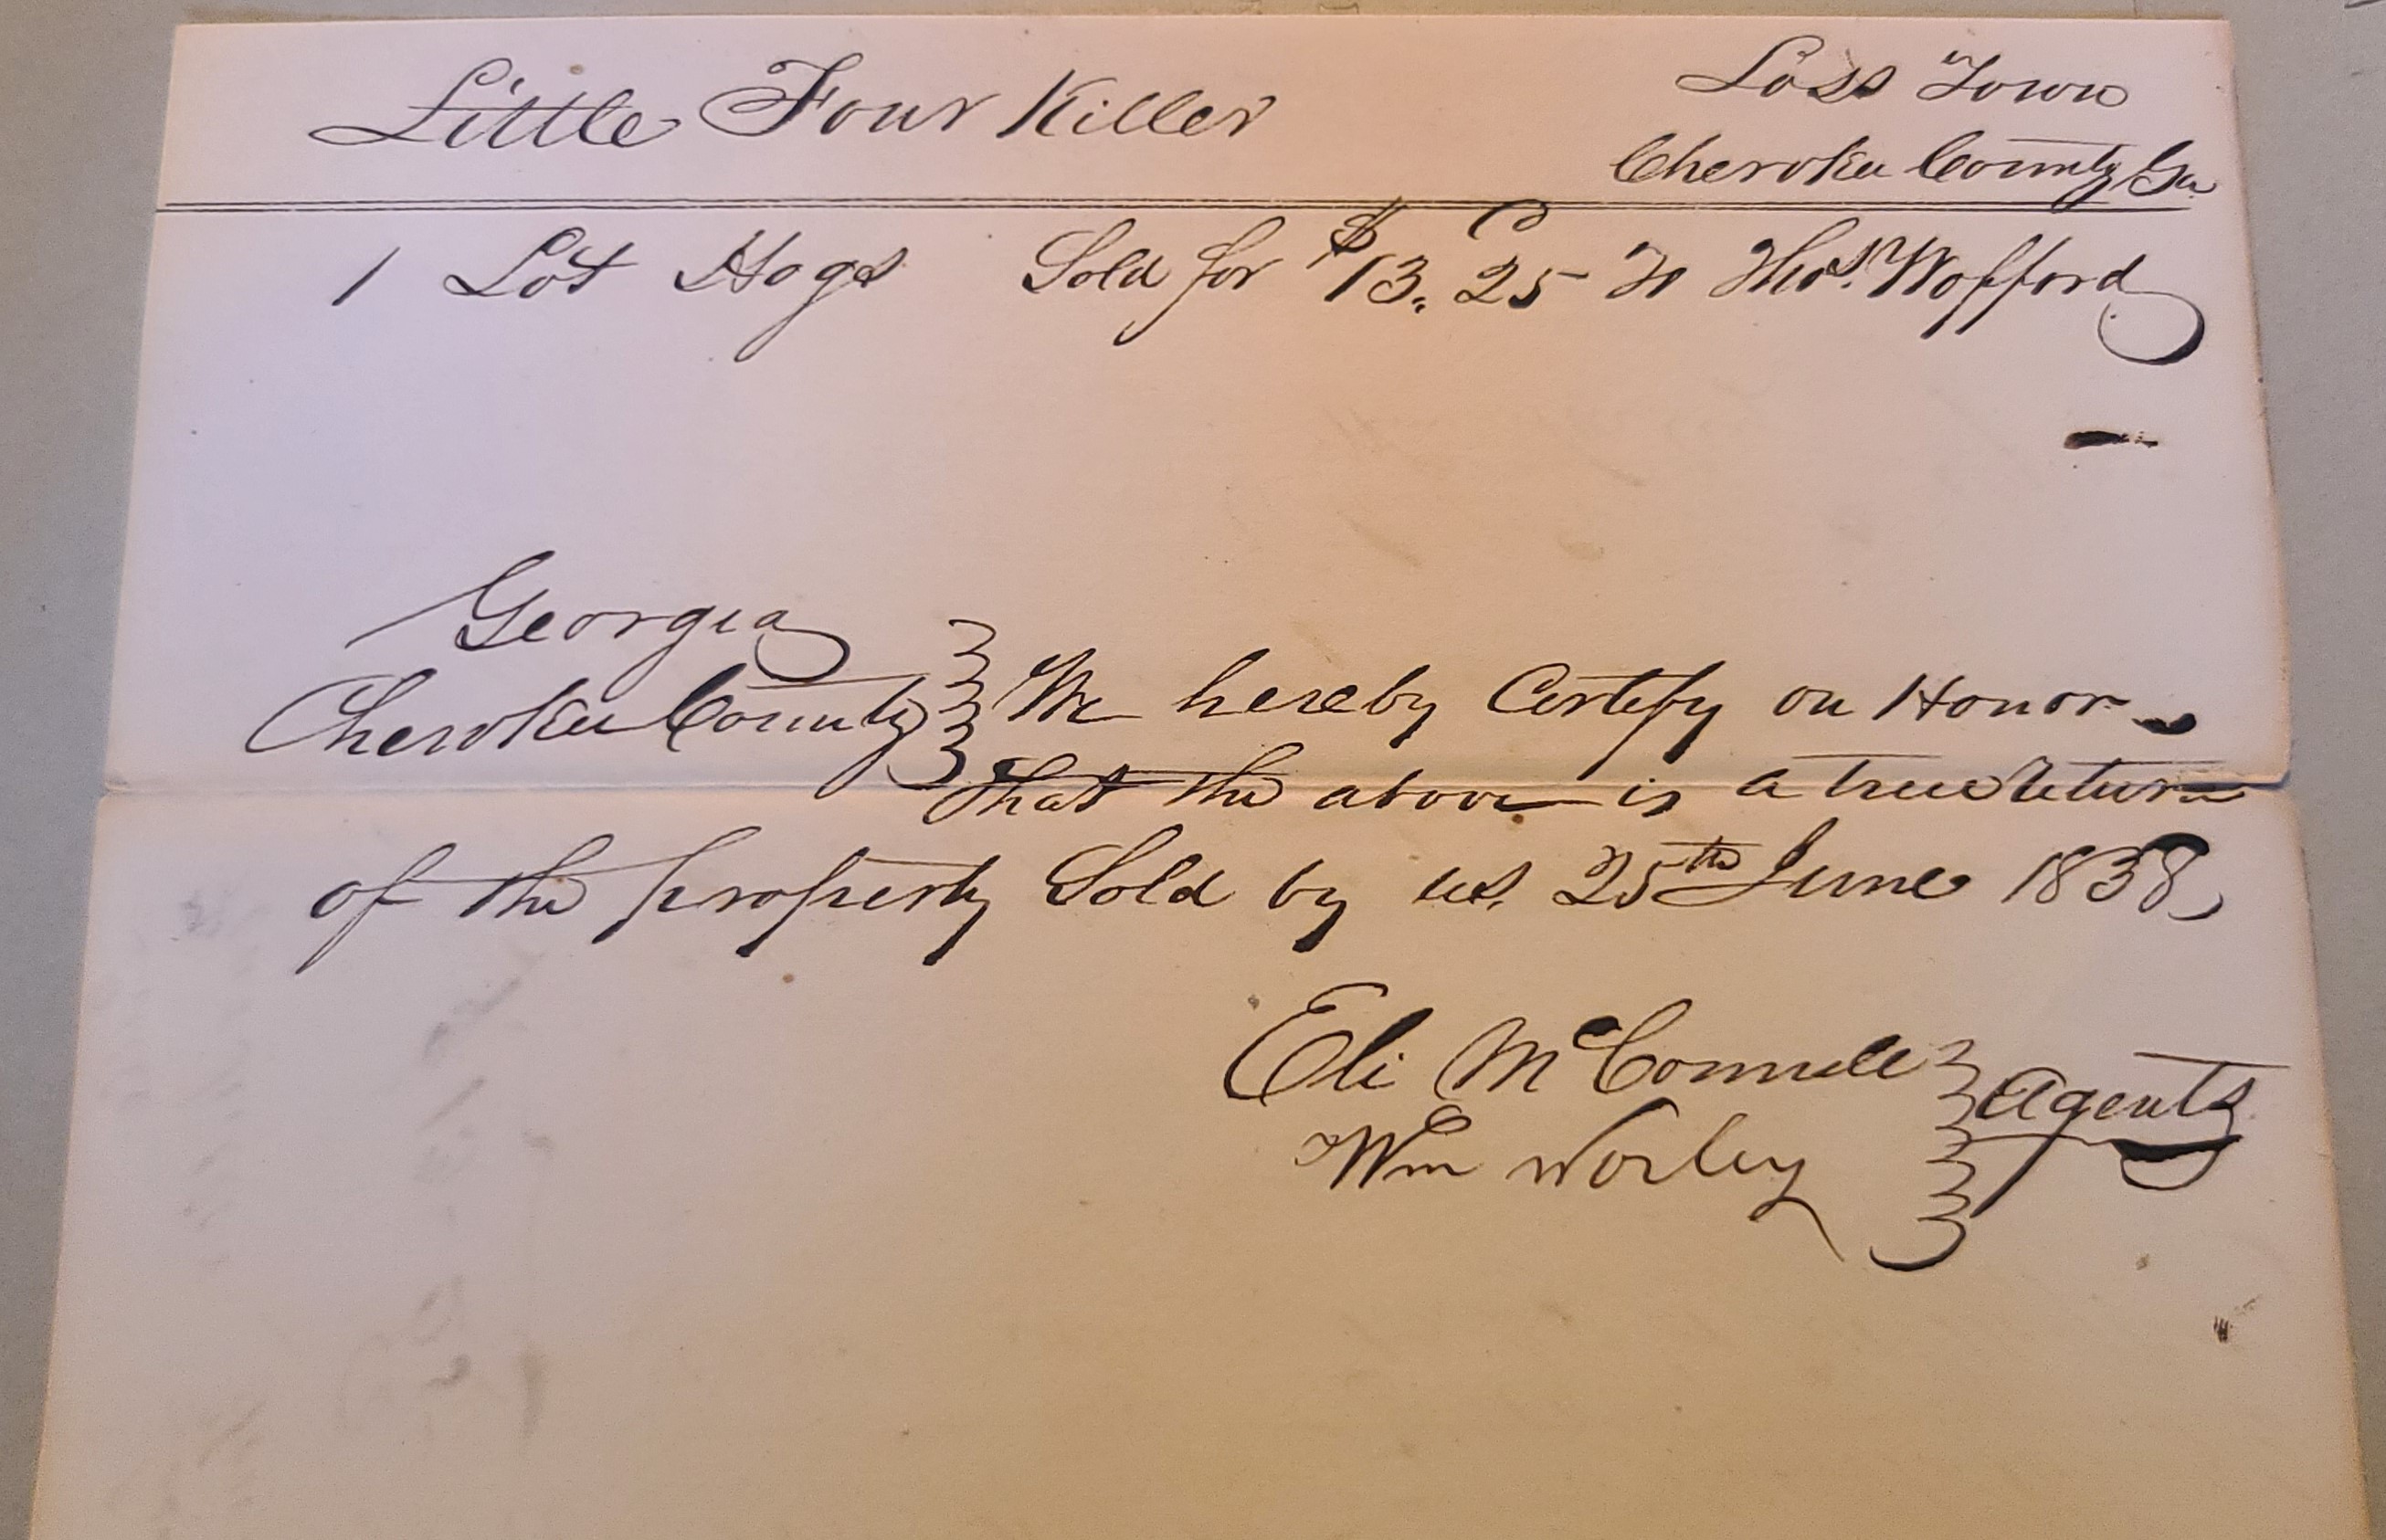 Little Four Killer
Loss Town
Cherokee County Ga.
1 Lot Hogs Sold for $13. 25 C to Thos. Wofford
Georgia
Cherokee County } We hereby Certify on Honor
that the above is a true Return
of the property Sold by us. 25th June 1838,
Eli McConnell
Wm Worley } Agents